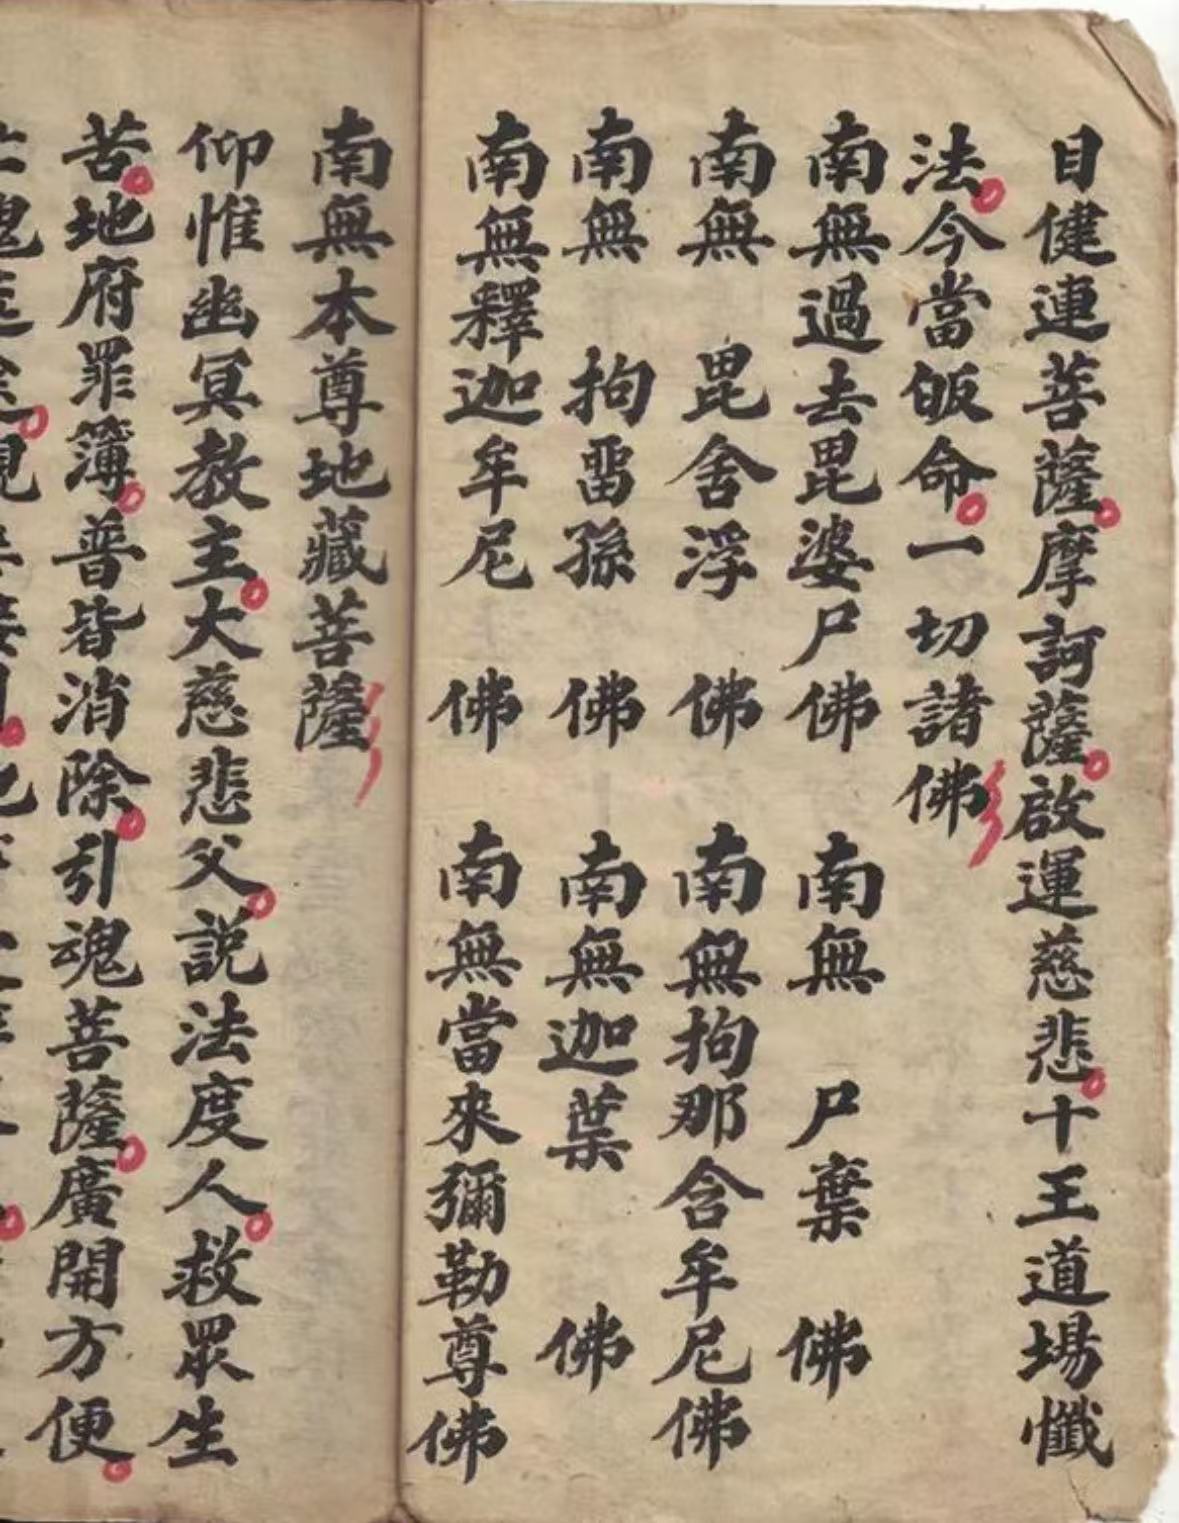 目健連菩薩。摩訶薩。啟運慈悲。十王道場懺
法。今當皈命。一切諸佛
南無過去毘婆尸佛 南無 尸棄 佛
南無 毘舍浮 佛 南無拘那含牟尼佛
南無 拘畱孫 佛 南無迦葉 佛
南無釋迦牟尼 佛 南無當來彌勒尊佛
南無本尊地藏菩薩
仰惟幽冥教主。大慈悲父。説法度人。救眾生
苦。地府罪簿。普皆消除。引魂菩薩。廣開方便。